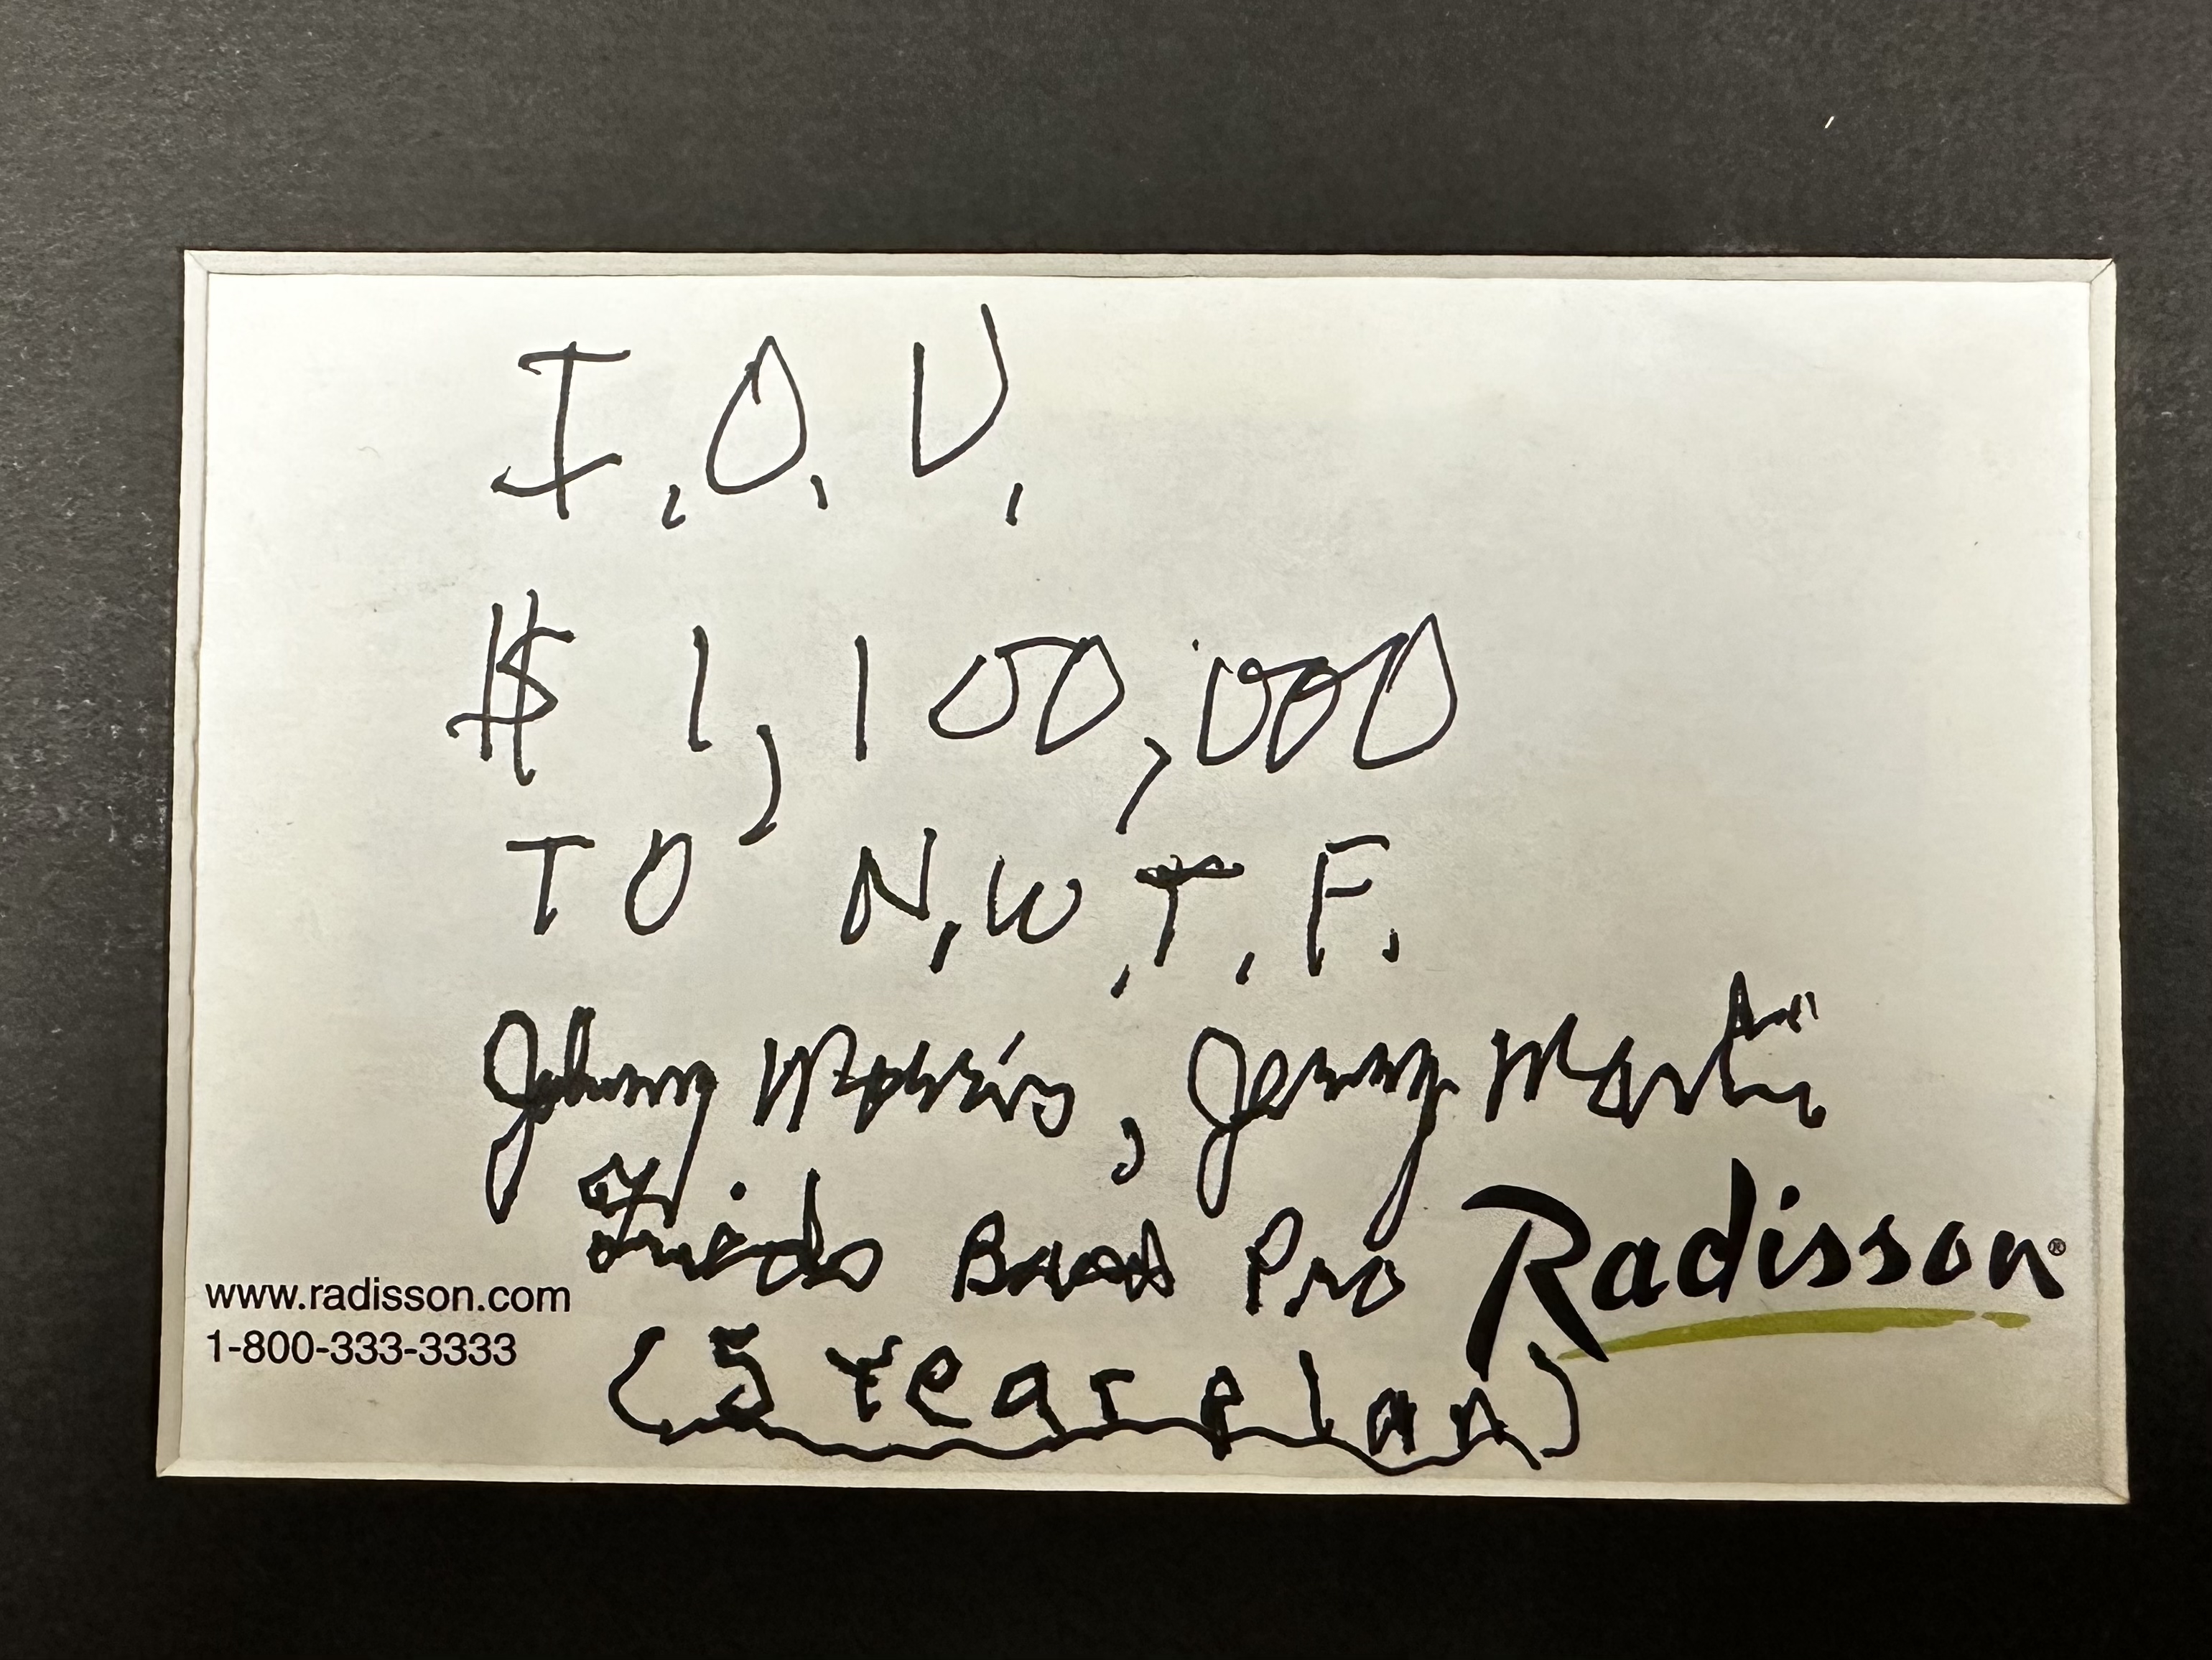 I.O.U.
$ 1,100,000
TO N.W.T.F.
Johnny Morris, Jerry Martin
Pro
Radisson®
www.radisson.com
1-800-333-3333
(5 Year Plan)